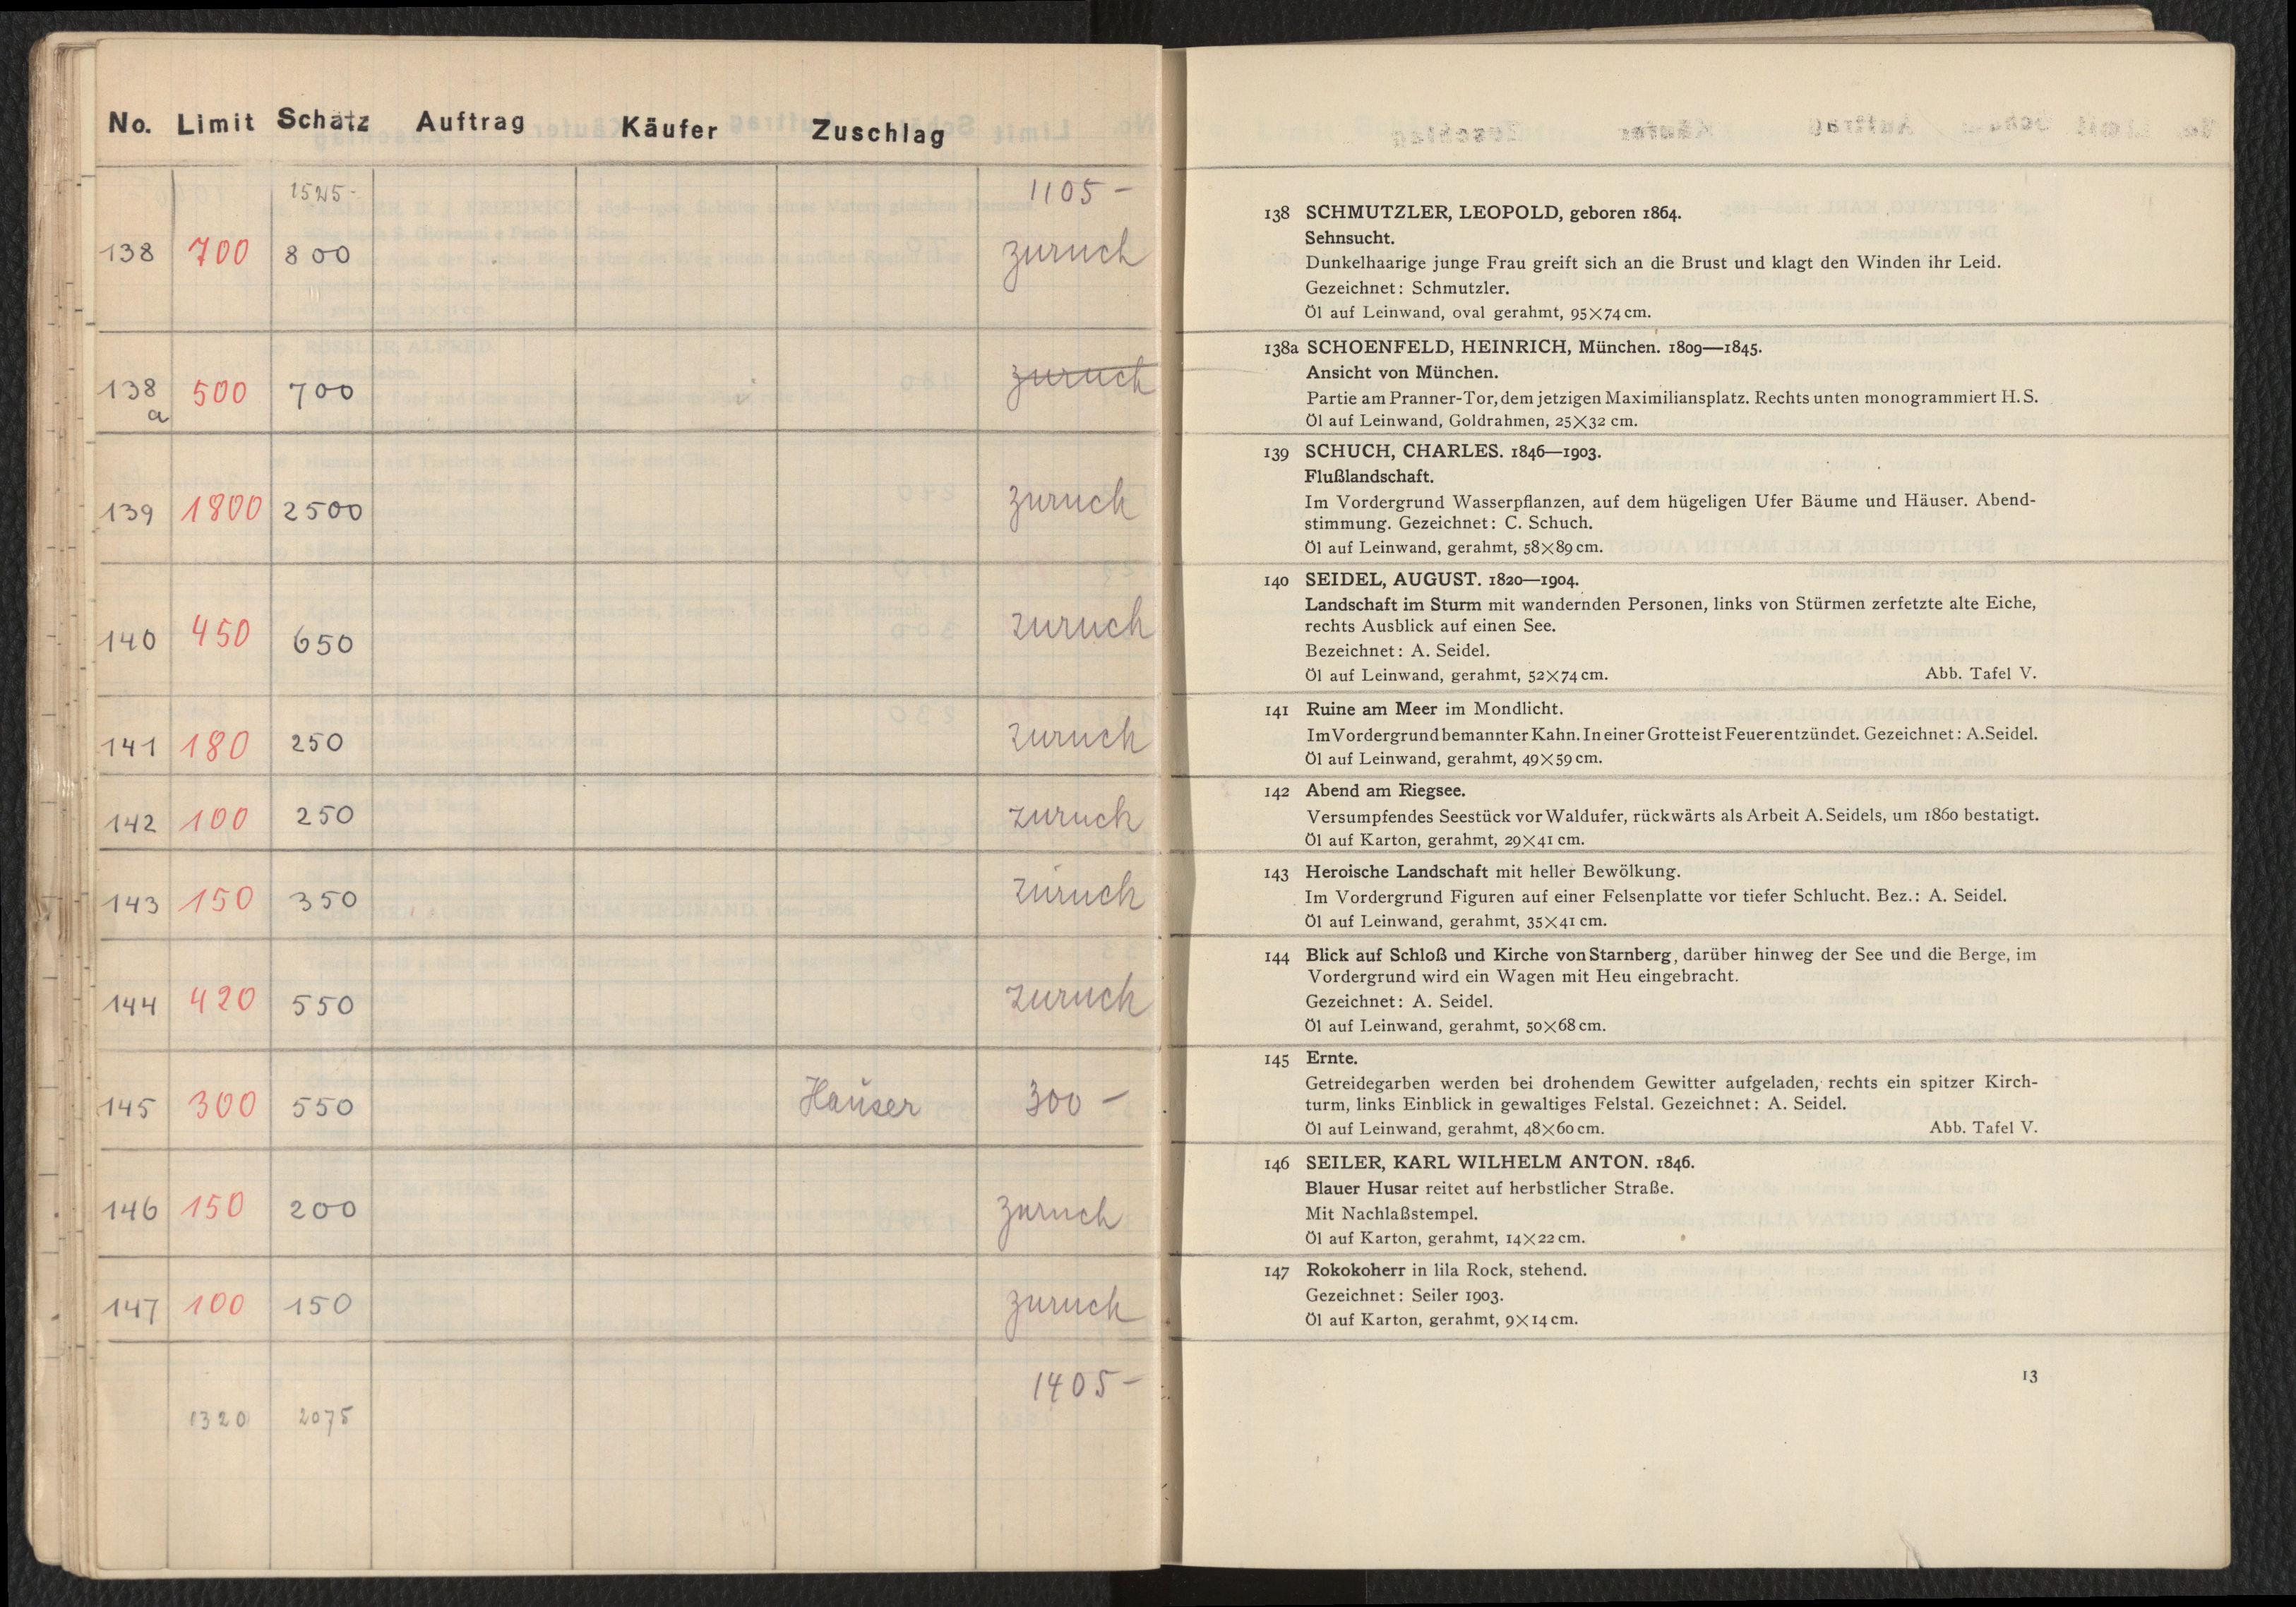 No. Limit Schätz Auftrag Käufer Zuschlag
1105 -
138 700 800 zuruch
138 a 500 700 zuruch
139 1800 2500 zuruch
140 450 650 zuruch
141 180 250 zuruch
142 100 250 zuruch
143 150 350 zuruch
144 420 550 zuruch
145 300 550 Hauser 300 -
146 150 200 zuruch
147 100 150 zuruch
1405 -
1320 2075
138 SCHMUTZLER, LEOPOLD, geboren 1864.
Sehnsucht.
Dunkelhaarige junge Frau greift sich an die Brust und klagt den Winden ihr Leid.
Gezeichnet: Schmutzler.
Öl auf Leinwand, oval gerahmt, 95×74 cm.
138a SCHOENFELD, HEINRICH, München. 1809—1845.
Ansicht von München.
Partie am Pranner-Tor, dem jetzigen Maximiliansplatz. Rechts unten monogrammiert H. S.
Öl auf Leinwand, Goldrahmen, 25×32 cm.
139 SCHUCH, CHARLES. 1846—1903.
Flußlandschaft.
Im Vordergrund Wasserpflanzen, auf dem hügeligen Ufer Bäume und Häuser. Abend-
stimmung. Gezeichnet: C. Schuch.
Öl auf Leinwand, gerahmt, 58×89 cm.
140 SEIDEL, AUGUST. 1820—1904.
Landschaft im Sturm mit wandernden Personen, links von Stürmen zerfetzte alte Eiche,
rechts Ausblick auf einen See.
Bezeichnet: A. Seidel.
Öl auf Leinwand, gerahmt, 52×74 cm. Abb. Tafel V.
141 Ruine am Meer im Mondlicht.
Im Vordergrund bemannter Kahn. In einer Grotte ist Feuer entzündet. Gezeichnet: A. Seidel.
Öl auf Leinwand, gerahmt, 49×59 cm.
142 Abend am Riegsee.
Versumpfendes Seestück vor Waldufer, rückwärts als Arbeit A. Seidels, um 1860 bestatigt.
Öl auf Karton, gerahmt, 29×41 cm.
143 Heroische Landschaft mit heller Bewölkung.
Im Vordergrund Figuren auf einer Felsenplatte vor tiefer Schlucht. Bez.: A. Seidel.
Öl auf Leinwand, gerahmt, 35×41 cm.
144 Blick auf Schloß und Kirche von Starnberg, darüber hinweg der See und die Berge, im
Vordergrund wird ein Wagen mit Heu eingebracht.
Gezeichnet: A. Seidel.
Öl auf Leinwand, gerahmt, 50×68 cm.
145 Ernte.
Getreidegarben werden bei drohendem Gewitter aufgeladen, rechts ein spitzer Kirch-
turm, links Einblick in gewaltiges Felstal. Gezeichnet: A. Seidel.
Öl auf Leinwand, gerahmt, 48×60 cm. Abb. Tafel V.
146 SEILER, KARL WILHELM ANTON. 1846.
Blauer Husar reitet auf herbstlicher Straße.
Mit Nachlaßstempel.
Öl auf Karton, gerahmt, 14×22 cm.
147 Rokokoherr in lila Rock, stehend.
Gezeichnet: Seiler 1903.
Öl auf Karton, gerahmt, 9×14 cm.
13